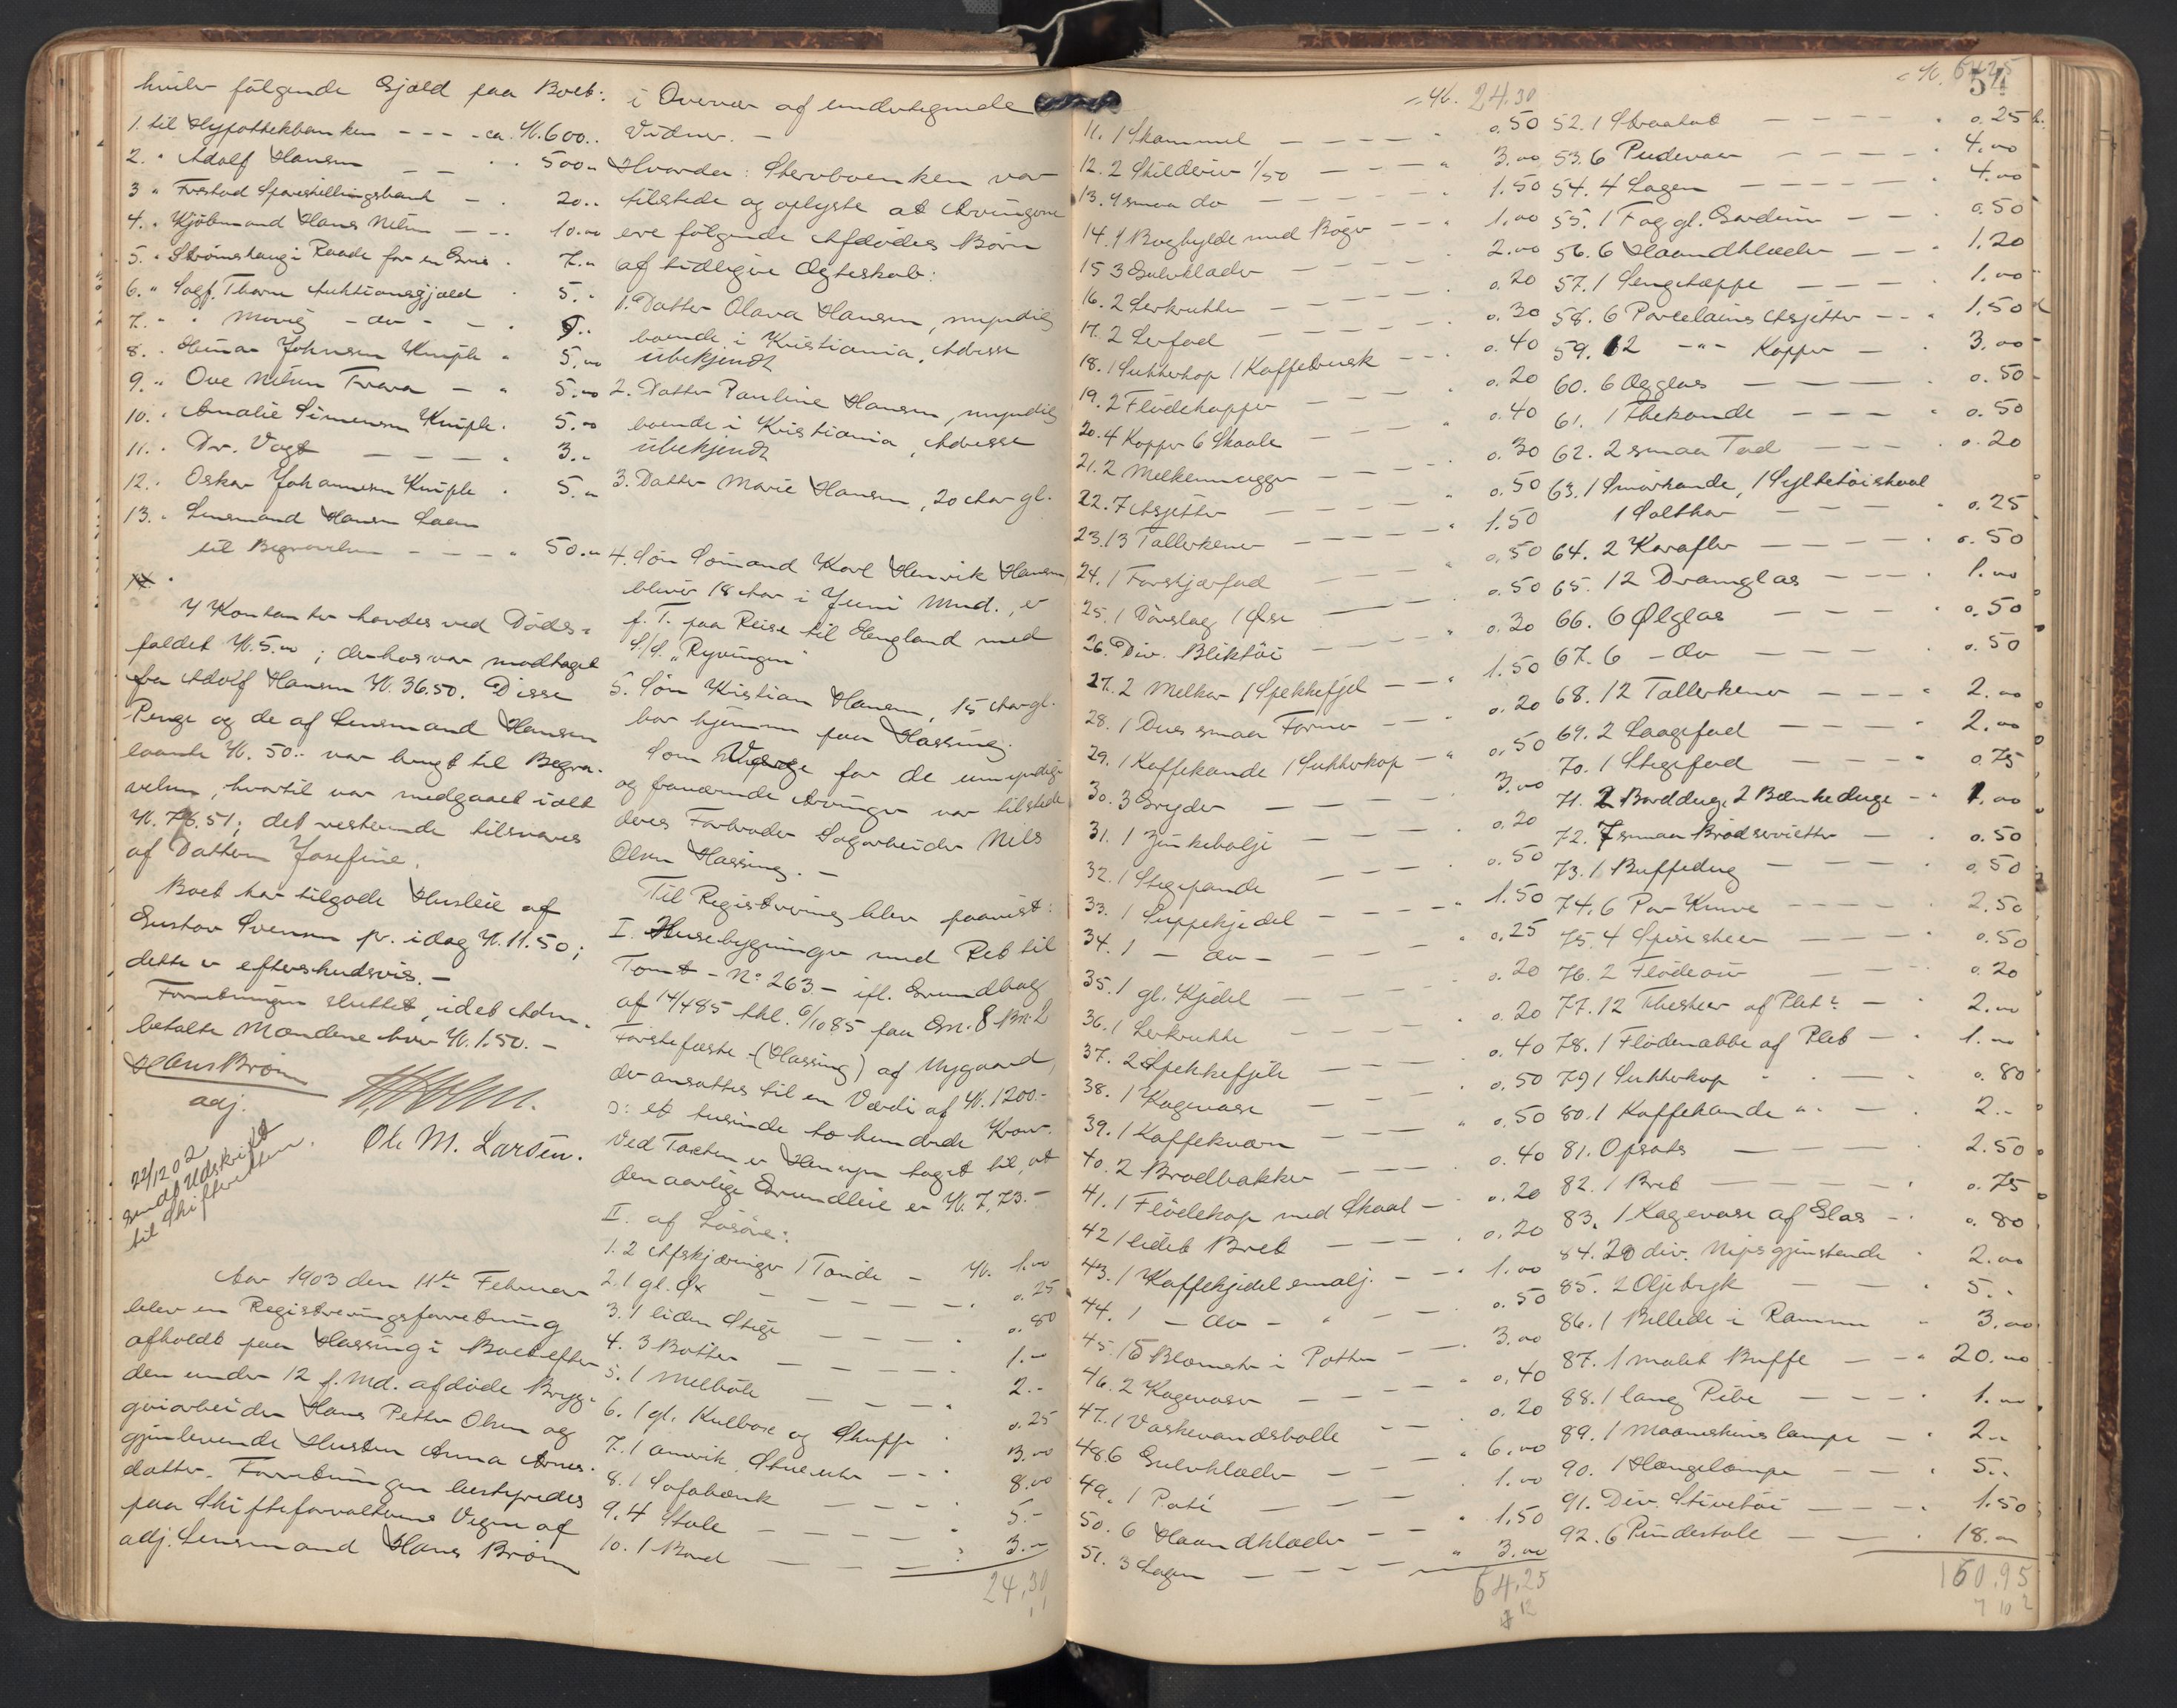 hviler følgende Gjæld paa Boet:
1. til Hypothekbanken - - - ca. Kr. 600..
2. " Adolf Hansen - - " 500..
3 " Fredstad Sparebank - . 20..
4. " Kjøbmand Hans Nilsen - - . 10.00
5. " Strømshaug i Raade for en Gris . 7..
6. " Sagf. Thorne Auktionsgjæld . 5..
7. " " Movig - do - - . 5..
8. . Helmar Johnsen Kniple " 5.00
9. " Ove Nilsen Trara - " 5.00
10. . Amalie Simensen Kniple . 5.00
11. . Dr. Vogt - - - - . 3..
12. . Oskar Johannesen Kniple . 5..
13. . Lensmand Hansen Laan
til Begravelsen - - - " 50..
I Kontanter havdes ved Døds-
faldet Kr. 5.00; derhos var modtaget
fra Adolf Hansen Kr. 36.50. Disse
Penge og de af Lensmand Hansen
laante Kr. 50.. var brugt til Begra-
velsen, hvortil var medgaaet ialt
Kr. 76.51; det resterende tilsvares
af Datteren Josefine.
Boet har tilgode Husleie af
Gustav Svensen pr. idag Kr. 11.50;
dette er efterskudsvis. -
Forretningen sluttet, idet Adm.
betalte Mændene hver Kr. 1.50. -
Hans Brøin
adj.
Ole M. Larsen.
22/12 02
sendt Udskrift
til Skifteretten.
Aar 1903 den 11te Februar
blev en Registreringsforretning
afholdt paa Hassing i Boet efter
den under 12 f. Md. afdøde Brygge-
riarbeider Hans Petter Olsen og
gjenlevende Hustru Anna Arnes-
datter. Forretningen bestyredes
paa Skifteforvalterens Vegne af
adj. Lensmand Hans Brøin
i Overvær af undertegnede
Vidner. -
Hvorder: Stervboenken var
tilstede og oplyste at Arvingerne
ere følgende Afdødes Børn
af tidligere Ægteskab:
1. Datter Olava Hansen, myndig
boende i Kristiania, Adresse
ubekjendt
2. Datter Pauline Hansen, myndig
boende i Kristiania, Adresse
ubekjendt
3. Datter Marie Hansen, 20 Aar gl.
4. Søn Sømand Karl Henrik Hansen
bliver 18 Aar i Juni Mnd., er
f. T. paa Reise til England med
S/S. "Ryvingen"
5. Søn Kristian Hansen, 15 Aar gl.
bor hjemme paa Hassing.
Som Værge for de umyndige
og fraværende Arvinger var tilstede
deres Farbroder Sagarbeider Nils
Olsen Hassing. -
Til Registrering blev paavist:
I. Husebygninger med Ret til
Tomt - No 263 - ifl. Grundbog
af 14/4 85 thl. 6/10 85 paa Gn. 8 Bn. 2
Førstefæste (Hassing) af Nygaard,
der ansattes til en Værdi af Kr. 1200.-
ɔ: et tusinde to hundrede Kroner.
Ved Taxten er Hensyn taget til, at
den aarlige Grundleie er Kr. 7,73. -
II. af Løsøre:
1. 2 Afskjæringer 1 Tønde - Kr. 1.00
2. 1 gl. Øx - - - - - . 0.25
3. 1 liden Stige - - - - . 0.80
4. 3 Bøtter - - - - - 1.00
5. 1 Melbøle - - - . 2.-
6. 1 gl. Kulboxe og Skuffe . 0.25
7. 1 amerik. Stueuhr - - . 3.00
8. 1 Sofabænk - - - . 8.00
9. 4 Stole - - - - - " 5.-
10. 1 Bord - - - - : 3.-
24,30
= Kr. 24.30
11. 1 Skammel - - - - " 0.50
12. 2 Skilderier 1/50 - - - " 3.00
13. 4 smaa do - - - - . 1.50
14. 1 Boghylde med Bøger - - - . 1.00
15 3 Gulvklæder - - - - 2.00
16. 2 Lerkrukker - - - - . 0.20
17. 2 Lerfad - - - - . 0.30
18. 1 Sukkerkop 1 Kaffebrusk - - . 0.40
19. 2 Flødekopper - - - 0.20
20. 4 Kopper 6 Skaale - - " 0.40
21. 2 Melkemugger - - - . 0.30
22. 7 Asjetter - - - - . 0.50
23. 13 Tallerkener - - - - " 1.50
24. 1 Forskjærfad - - - " 0.50
25. 1 Dørslag 1 Øse - - - . 0.50
26. Div. Bliktøi - - - - " 0.30
27. 2 Melkar 1 Spekkefjel - - " 1.50
28. 1 Dus smaa Former - - - . 0.20
29. 1 Kaffekande 1 Sukkerkop - " 0.50
30. 3 Gryder - - - - . 3.00
31. 1 Zinkebalje - - - . 0.20
32. 1 Stegepande - - - . 0.50
33. 1 Suppekjedel - - - " 1.50
34. 1 - do - - - " 0.25
35. 1 gl. Kjedel - - - . 0.20
36. 1 Lerkrukke - - - . 0.20
37. 2 Spekkefjele - - - . 0.40
38. 1 Kagevase - - - . 0.50
39. 1 Kaffekværn - - - " 0.50
40. 2 Brødbakker - - - . 0.40
41. 1 Flødekop med Skaal - . 0.20
42 1 lidet Bret - - - . 0.20
43. 1 Kaffekjedel emalj. - - . 1.00
44. 1 - do - " - . 0.50
45. 15 Blomster i Potter - - . 3.00
46. 2 Kagevaser - - - " 0.40
47. 1 Vaskevandsbolle - - . 0.20
48 6 Gulvklæder - - - " 6.00
49. 1 Poti - - - . 1.00
50. 6 Haandklæder - - " 1.50
51. 3 Lagen - - - - " 3.00
64.25
12
= Kr. 64.25
54
52. 1 Straahat - - - - . 0.25
53. 6 Pudevaer - - - - . 4.00
54. 4 Lagen - - - - . 4.00
55. 1 Fag gl. Gardiner - - . 0.50
56. 6 Haandklæder - - " 1.20
57. 1 Sengetæppe - - - . 1.00
58. 6 Porcelains Asjetter - - " 1.50
59. 12 -"- Kopper - . 3.00
60. 6 Ægglas - - - - . 0.50
61. 1 Thekande - - - " 0.50
62. 2 smaa Fad - - - . 0.20
63. 1 Smørkande, 1 Syltetøiskaal
1 Saltkar - - - " 0.25
64. 2 Karafler - - - - . 0.50
65. 12 Dramglas - - - . 1.00
66. 6 Ølglas - - - - " 0.50
67. 6 - do - - - - . 0.50
68. 12 Tallerkener - - - " 2.00
69. 2 Laagefad - - - - " 2.00
70. 1 Stegefad - - - - " 0.75
71. 2 Borddug, 2 Bænkeduge - " 1.00
72. 7 smaa Brødservietter - . 0.50
73. 1 Buffedug - - - - . 0,50
74. 6 Par Knive - - - - . 2.50
75. 4 Spiseskeer - - - . 0.50
76. 2 Flødeøser - - - . 0.20
77. 12 Theskeer af Plet - . 2.00
78. 1 Flødenabbe af Plet - . 1.00
79 1 Sukkerkop " - . 0.80
80. 1 Kaffekande " - . 2..
81. Opsats - - - . 2.50
82. 1 Bret - - - - . 0.75
83. 1 Kagevase af Glas - . 0.80
84. 20 div. Nipsgjenstande . 2.00
85. 2 Oljetryk - - . 5..
86. 1 Billede i Ramme " 3.00
87. 1 malet Buffe - - " 20.00
88. 1 lang Pibe - - - . 1.00
89. 1 Maaneskinslampe - . 2..
90. 1 Hængelampe - - . 5..
91. Div. Stivetøi - - - . 1.50
92. 6 Pindestole - - . 18.00
150.95
7 10 2